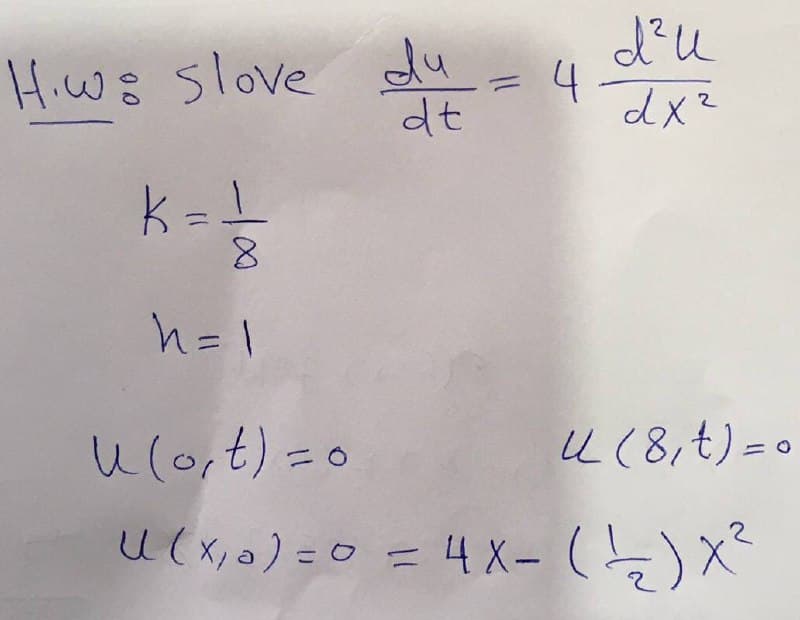 H.w: slove du/dt = 4 d²u/dx²
K = 1/8
h = 1
u(0,t) = 0 u(8,t) = 0
u(x,0) = 0 = 4x - (1/2)x²